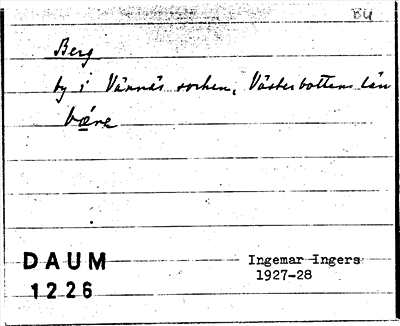 BU
Berg
by i Vännäs socken, Västerbottens län
bære
DAUM Ingemar Ingers
1226 1927-28